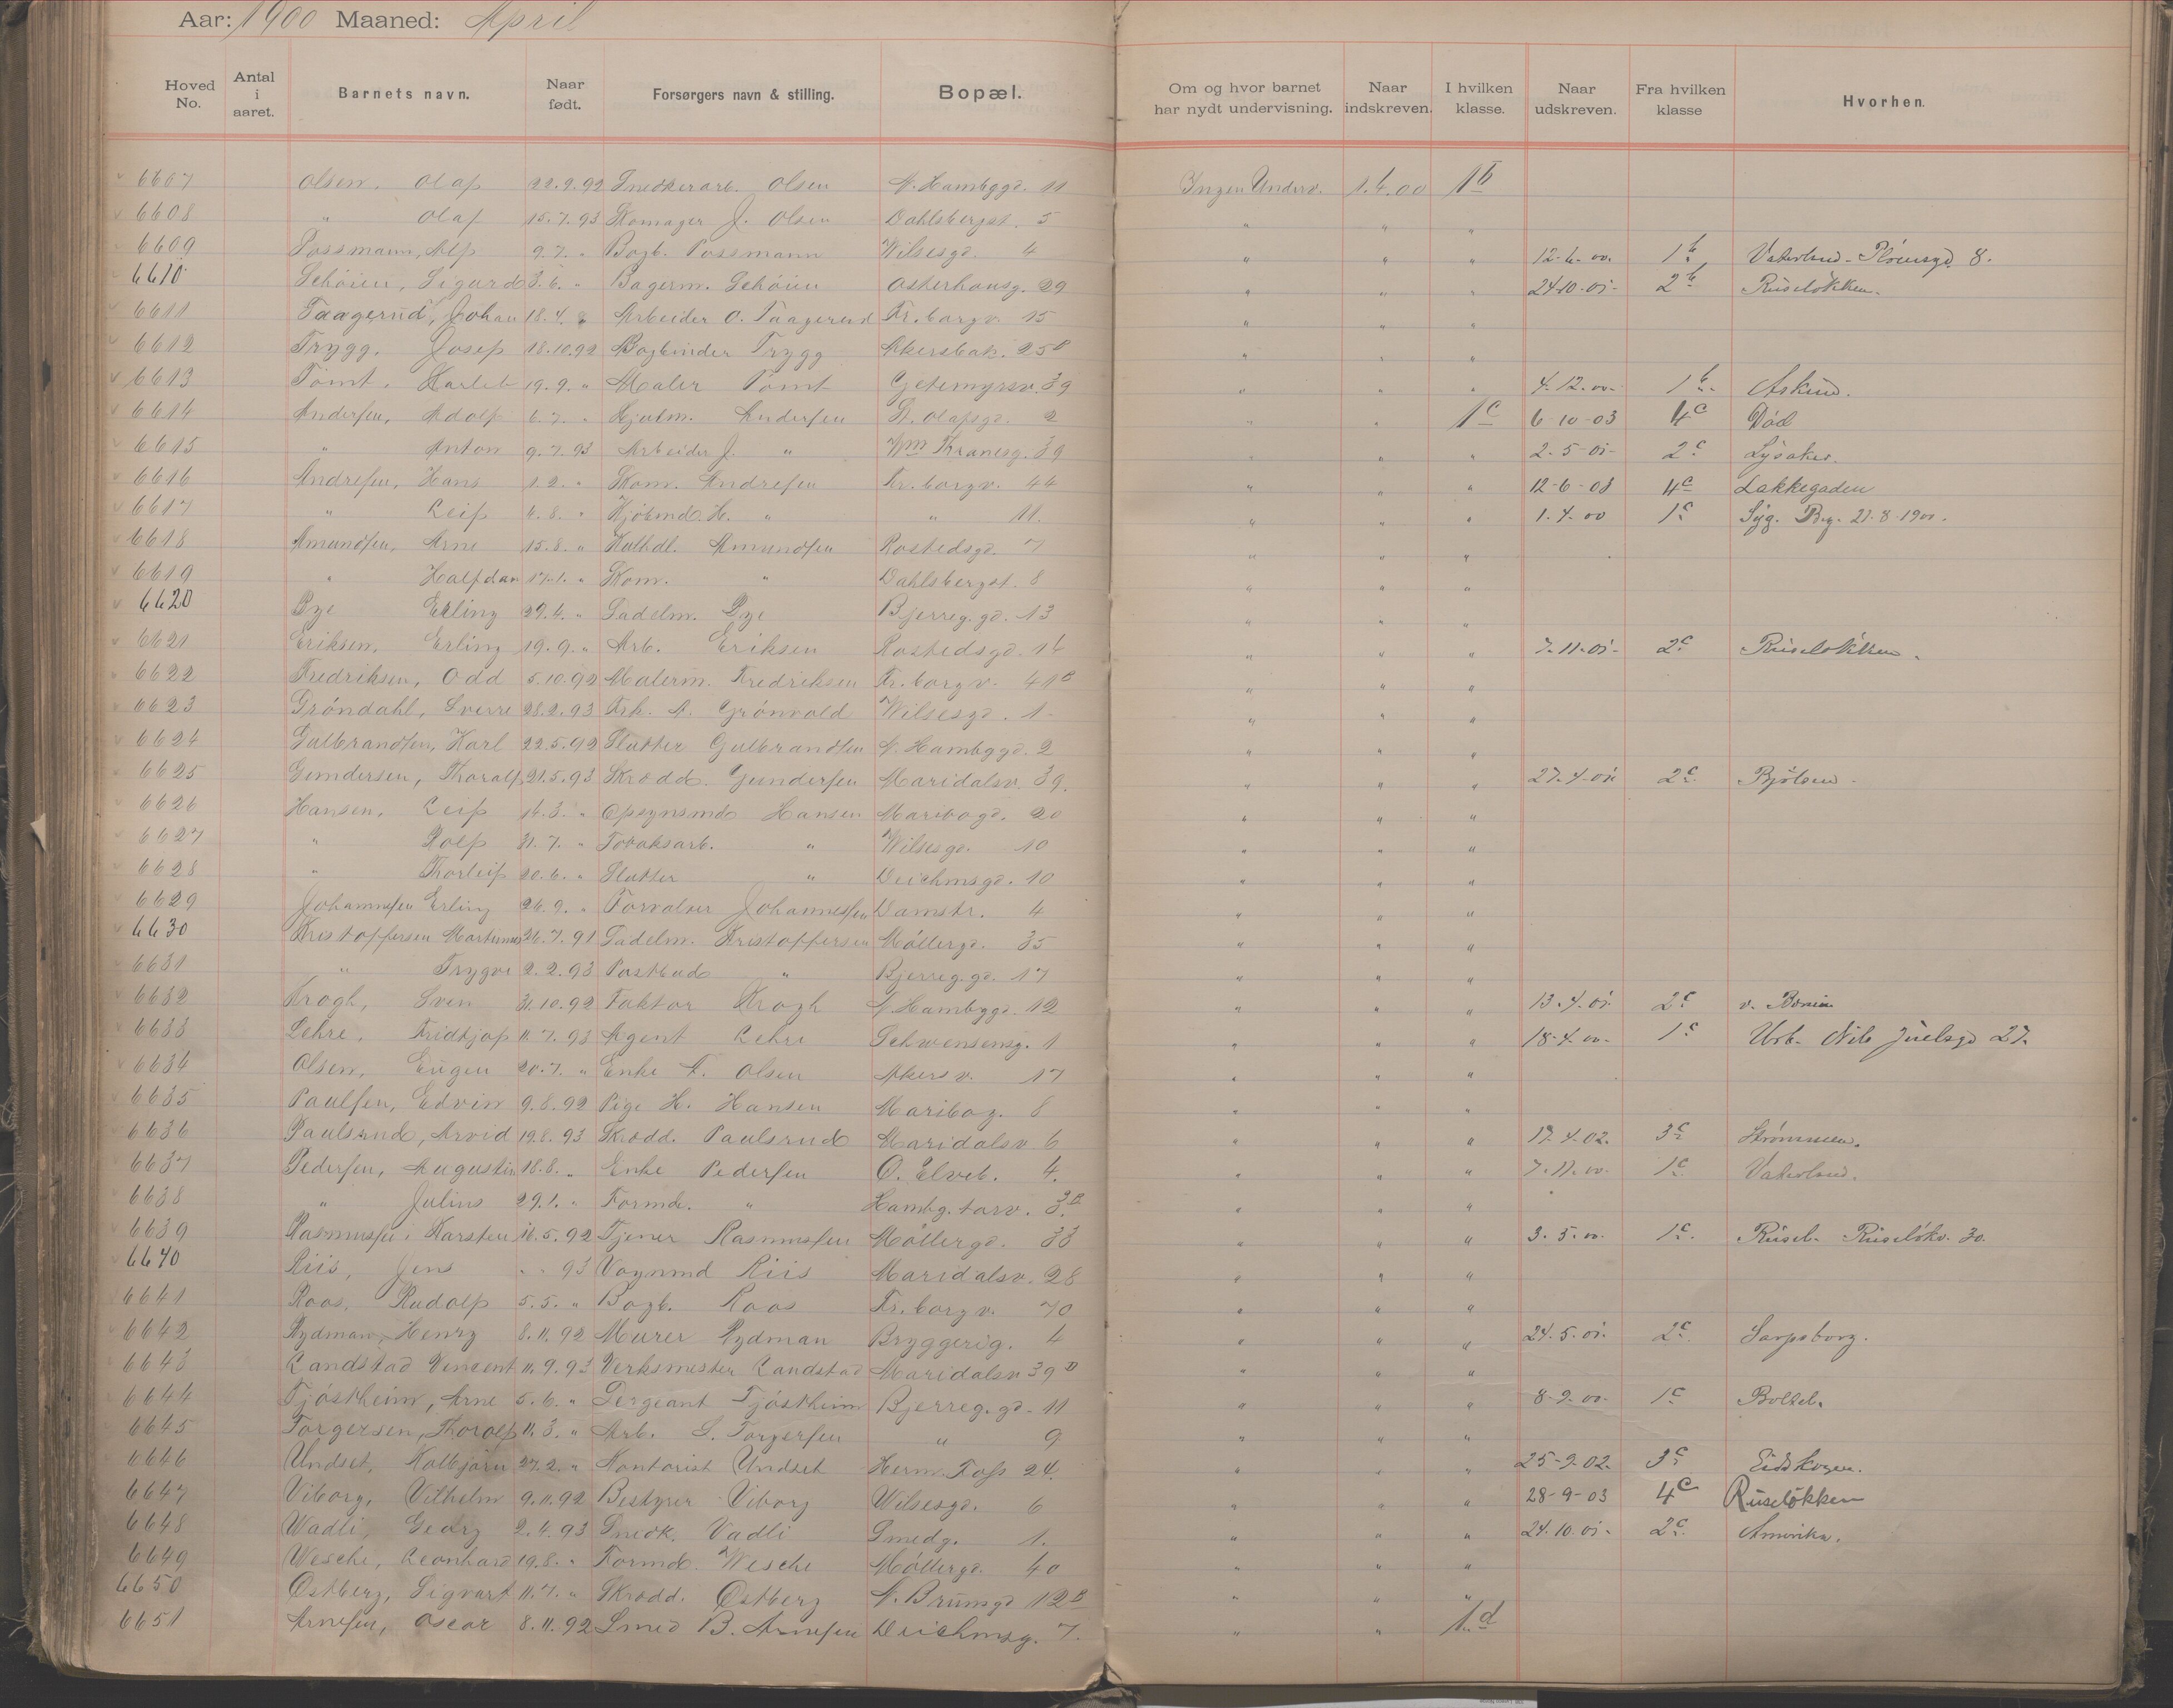 Aar: 1900 Maaned: April
Hoved No. Antal i aaret. Barnets navn. Naar født. Forsørgers navn & stilling. Bopæl. Om og hvor barnet har nydt undervisning. Naar indskreven. I hvilken klasse. Naar udskreven. Fra hvilken klasse Hvorhen.
6607 Olsen, Olaf 22.9.92 Snedkerarb. Olsen N. Hambggd. 11 Ingen Underv. 1.4.00 1b
6608 " Olaf 15.7.93 Skomager J. Olsen Dahlsbergst. 5 " " "
6609 Possmann, Alf 9.7. " Bogb. Possmann Wilsesgd. 4 " " " 12-6-00. 1b Vaterland - 8.
6610 Schøien, Sigurd 3.6. " Bagerm. Schøien Osterhausg. 29 " " " 24-10-01- 2b Ruseløkken.
6611 Taagerud, Johan 18.4. Arbeider O. Taagerud Fr.borgv. 15 " " "
6612 Trygg, Josef 18.10.92 Bogbinder Trygg Akersbak. 25B " " "
6613 Tømt, Harleb 19.9. " Maler Tømt Getemyrsv. 39 " " " 4-12-00- 1b Askim.
6614 Andersen, Adolf 6.7. " Hjulm. Andersen St. Olafsgd. 2 " " 1c 6-10-03 4c Død
6615 " Anton 9.7.93 Arbeider J. " Wm Thranesg. 39 " " " 2-5-01- 2c Lysaker.
6616 Andresen, Hans 1.2. " Skom. Andresen Fr.borgv. 44 " " " 12-6-03 4c Lakkegaden
6617 " Leif 4.8. " Kjøbmd. H. " " 11. " " " 1.4.00 1c Syg. Beg. 21.8.1900.
6618 Amundsen, Arne 15.8. " Kulhdl. Amundsen Rostedsgd. 7 " " "
6619 " Halfdan 17.1. " Skom. " Dahlsbergst. 8 " " "
6620 Bye Erling 29.4. " Sadelm. Bye Bjerreg.gd. 13 " " "
6621 Eriksen, Erling 19.9. " Arb. Eriksen Rostedsgd. 14 " " " 7-11-01- 2c Ruseløkken.
6622 Fredriksen, Odd 5.10.92 Malerm. Fredriksen Fr.borgv. 41B " " "
6623 Grøndahl, Sverre 28.2.93 Frk. A. Grønvold Wilsesgd. 1 " " "
6624 Gulbrandsen, Karl 22.5.92 Slatter Gulbrandsen N. Hambggd. 2 " " "
6625 Gundersen, Thoralf 21.5.93 Skrædd. Gundersen Maridalsv. 39. " " " 27-4-01 2c Bjølsen
6626 Hansen, Leif 14.3. " Opsynsmd Hansen Maribogd. 20 " " "
6627 " Rolf 31.7. " Tobaksarb. " Wilsesgd. 10 " " "
6628 " Thorleif 20.6. " Slatter " Deichmsgd. 10 " " "
6629 Johannesen Erling 26.9. " Forvalter Johannesen Damstr. 4 " " "
6630 Kristoffersen Martinus 26.7.91 Sadelm. Kristoffersen Møllergd. 35 " " "
6631 " Trygve 2.2.93 Postbud " Bjerreg.gd. 17 " " "
6632 Krogh, Sven 31.10.92 Faktor Krogh N. Hambggd. 12 " " " 13.4.01 2c
6633 Lehre, Fridtjof 11.7.93 Agent Lehre Schwensensg. 1 " " " 18-4-00- 1c Urb. Nils Juelsgd 27.
6634 Olsen, Eugen 20.7. " Enke A. Olsen Akersv. 17 " " "
6635 Paulsen, Edvin 9.8.92 Pige H. Hansen Maribog. 8 " " "
6636 Paulsrud, Arvid 19.8.93 Skrædd. Paulsrud Maridalsv. 6 " " " 17-4-02. 3c Strømmen.
6637 Pedersen, Augustin 18.8. " Enke Pedersen O. Elveb. 4. " " " 7-11-00. 1c Vaterland.
6638 " Julius 29.1. " Formd. " Hambg.torv. 3B " " "
6639 Rasmussen, Karsten 16.5.92 Tjener Rasmussen Møllergd. 33 " " " 3-5-00. 1c. Rusel. Ruseløkv. 30.
6640 Riis, Jens .. 93 Vognmd Riis Maridalsv. 28 " " "
6641 Roos, Rudolf 5.5. " Bogb. Roos Fr.borgv. 70 " " "
6642 Rydman, Henry 8.11.92 Murer Rydman Bryggerig. 4 " " " 24-5-01. 2c Sarpsborg.
6643 Landstad Vincent 11.9.93 Verksmester Landstad Maridalsv. 39B " " "
6644 Tjøstheim, Arne 5.6. " Sergeant Tjøstheim Bjerreg.gd. 11 " " " 8-9-00- 1c Boltel.
6645 Torgersen, Thorolf 11.3. " Arb. S. Torgersen " 9 " " "
6646 Undset, Kolbjørn 27.2. " Kontorist Undset Herm. Foss 24. " " " 25-9-02. 3c Eidskogen.
6647 Viborg, Vilhelm 9.11.92 Bestyrer Viborg Wilsesgd. 6 " " " 28-9-03 4c Ruseløkken
6648 Wadli, Georg 2.4.93 Snedk. Vadli Smedg. 1. " " " 24.10.01- 2c. Amerika.
6649 Wesche, Leonhard 19.8. " Formd. Wesche Møllergd. 40 " " "
6650 Østberg, Sigvart 11.7. " Skrædd. Østberg N. Brumgd 12B " " "
6651 Arnesen, Oscar 8.11.92 Smed B. Arnesen Deichmsg. 7. " " 1d